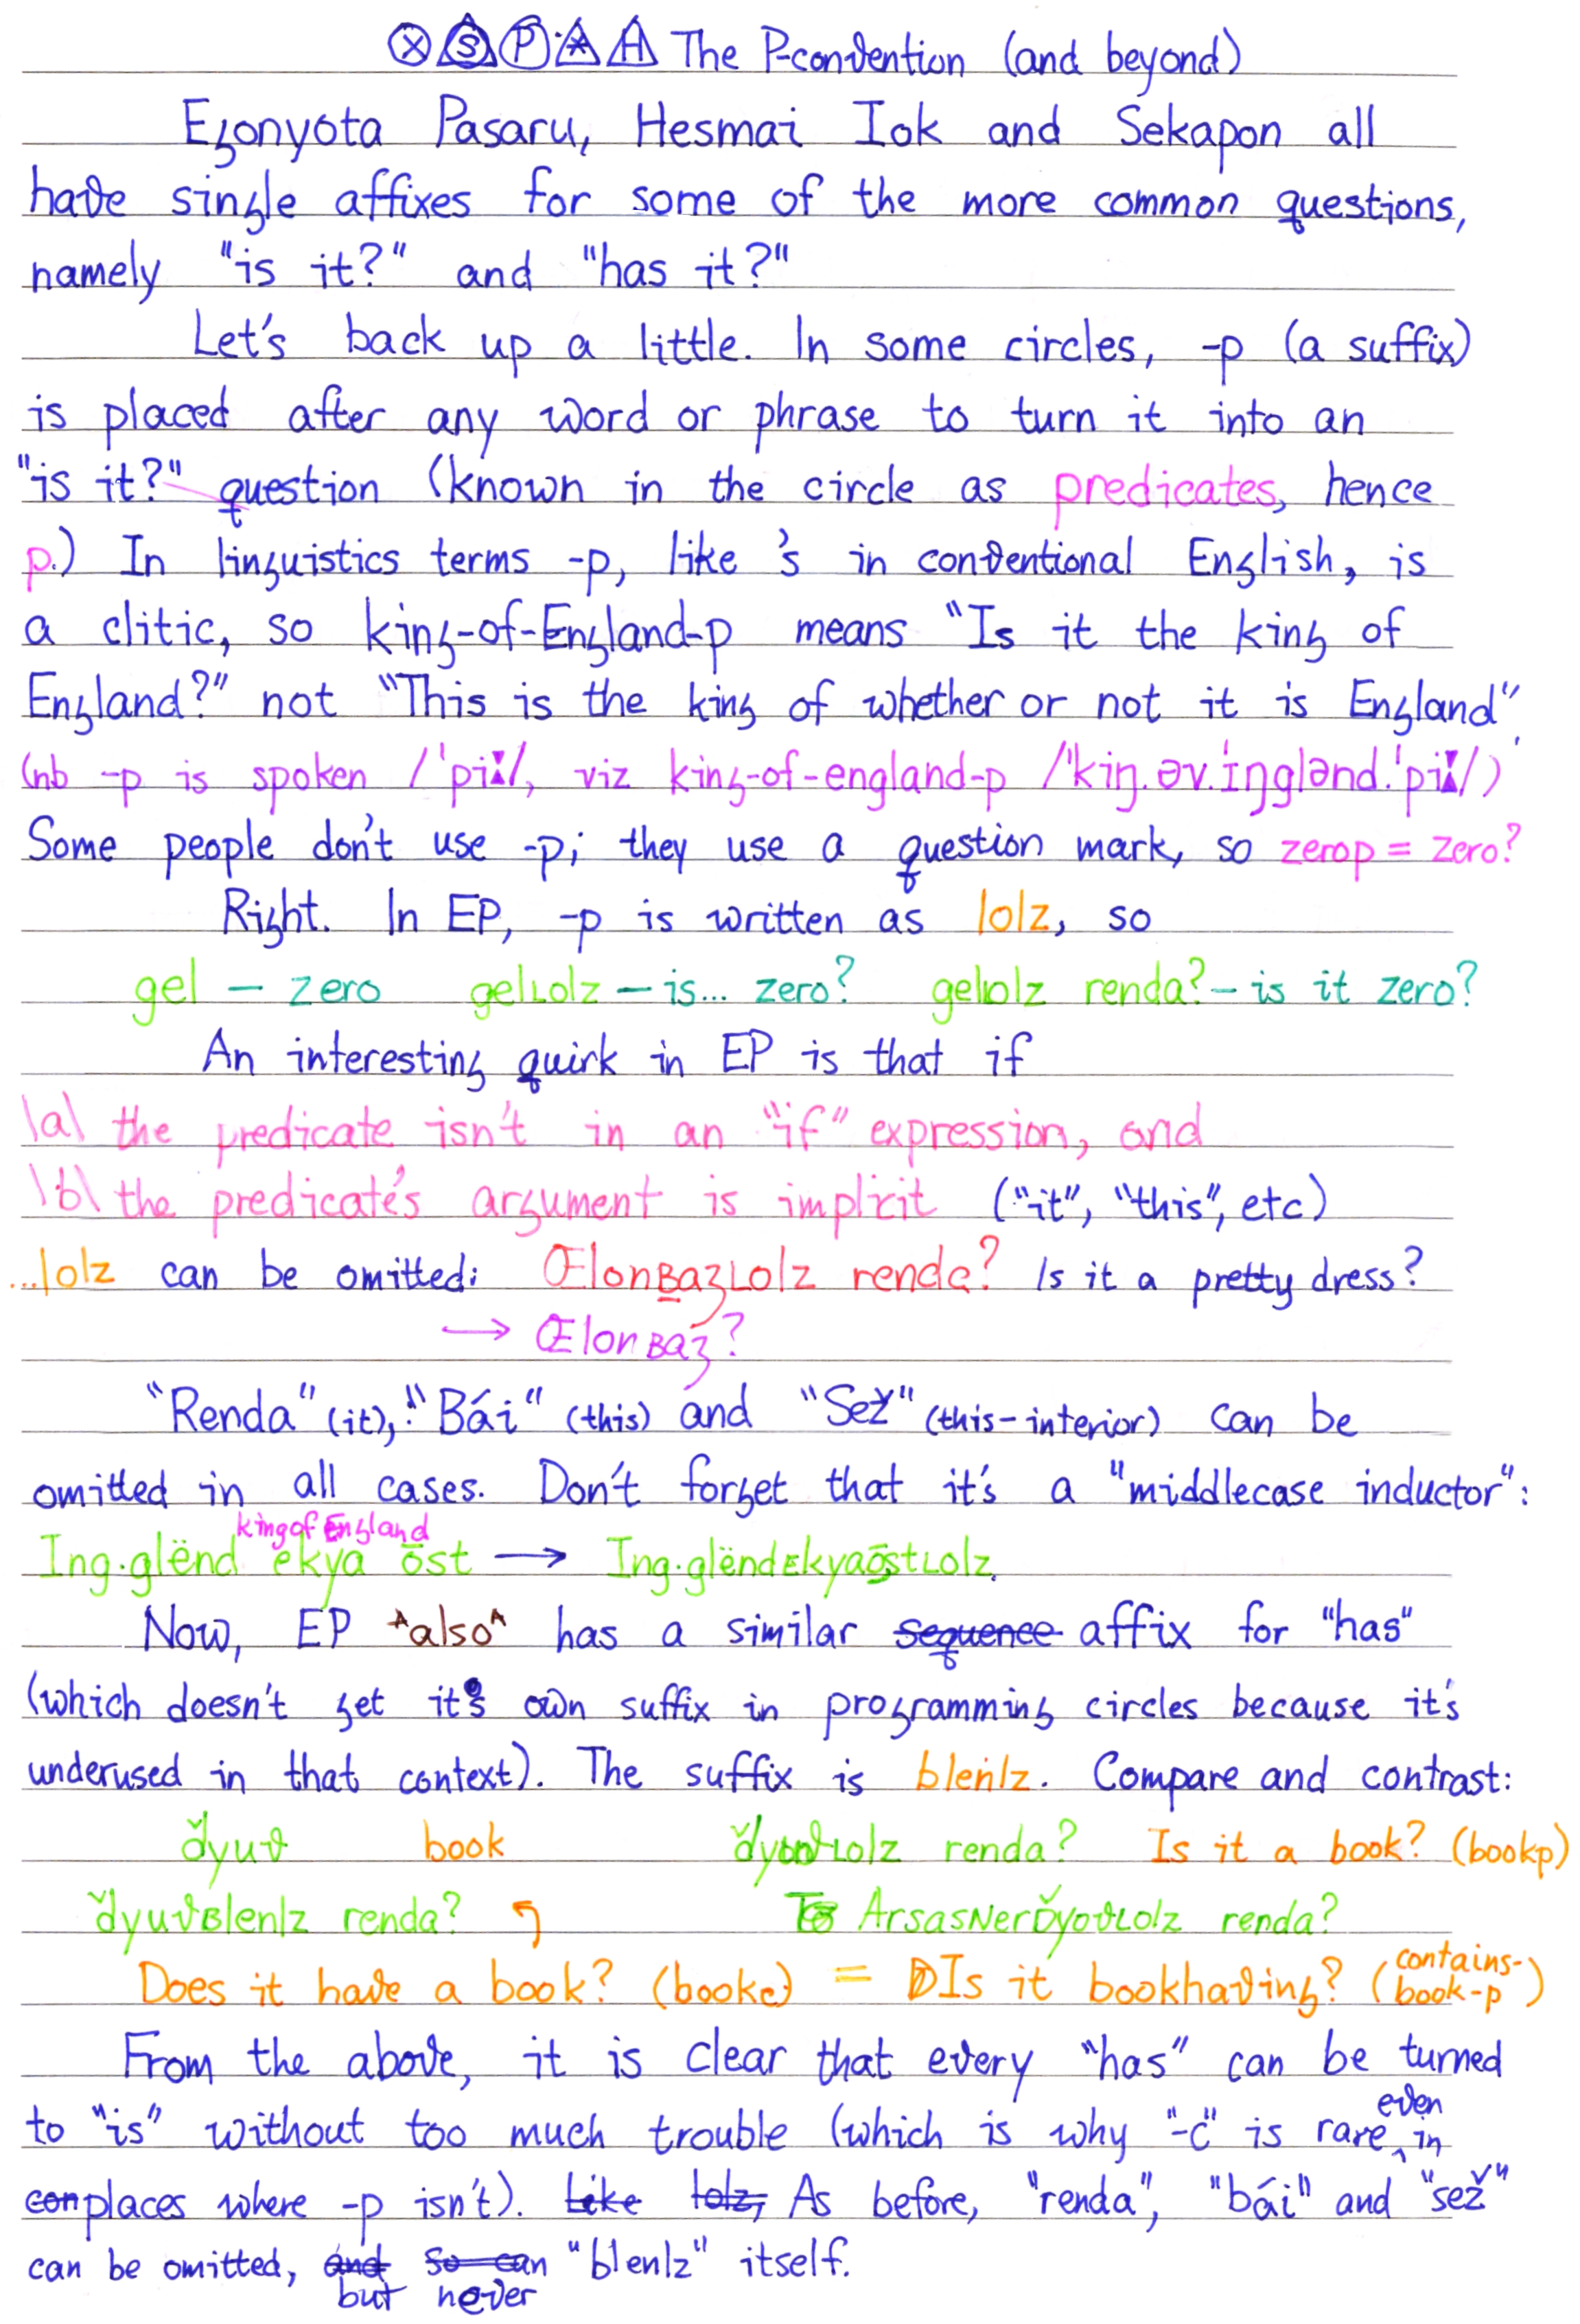 The P-convention (and beyond)
Ezonyota Pasaru, Hesmai Iok and Sekapon all
have single affixes for some of the more common questions,
namely "is it?" and "has it?"
Let's back up a little. In some circles, -p (a suffix)
is placed after any word or phrase to turn it into an
"is it?" question (known in the circle as predicates, hence
p.) In linguistics terms -p, like 's in conventional English, is
a clitic, so king-of-England-p means "Is it the king of
England?" not "This is the king of whether or not it is England".
(nb -p is spoken /ˈpiː/, viz king-of-england-p /ˈkiŋ.əv.ˈiŋglənd.ˈpiː/)
Some people don't use -p; they use a question mark, so zerop = zero?
Right. In EP, -p is written as lolz, so
gel – zero gelʟolz – is... zero? gelʟolz renda? – is it zero?
An interesting quirk in EP is that if
\a\ the predicate isn't in an "if" expression, and
\b\ the predicate's argument is implicit ("it", "this", etc)
...lolz can be omitted: Œlonʙazʟolz renda? Is it a pretty dress?
→ Œlonʙaz?
"Renda" (it), "Bái" (this) and "Sež" (this-interior) can be
omitted in all cases. Don't forget that it's a "middlecase inductor":
king of England
Ing·glënd ekya ōst → Ing·glëndᴇkyaōstʟolz.
Now, EP ^also^ has a similar sequence affix for "has"
(which doesn't get it's own suffix in programming circles because it's
underused in that context). The suffix is blenlz. Compare and contrast:
ďyuv book ďyuvʟolz renda? Is it a book? (bookp)
ďyuvʙlenlz renda? ArsasɴerĎyovʟolz renda?
Does it have a book? (bookc) = Is it bookhaving? (contains-book-p)
From the above, it is clear that every "has" can be turned
to "is" without too much trouble (which is why "-c" is rare, even in
conplaces where -p isn't). Like lolz, As before, "renda", "bái" and "sež"
can be omitted, and so can "blenlz" itself.
but never